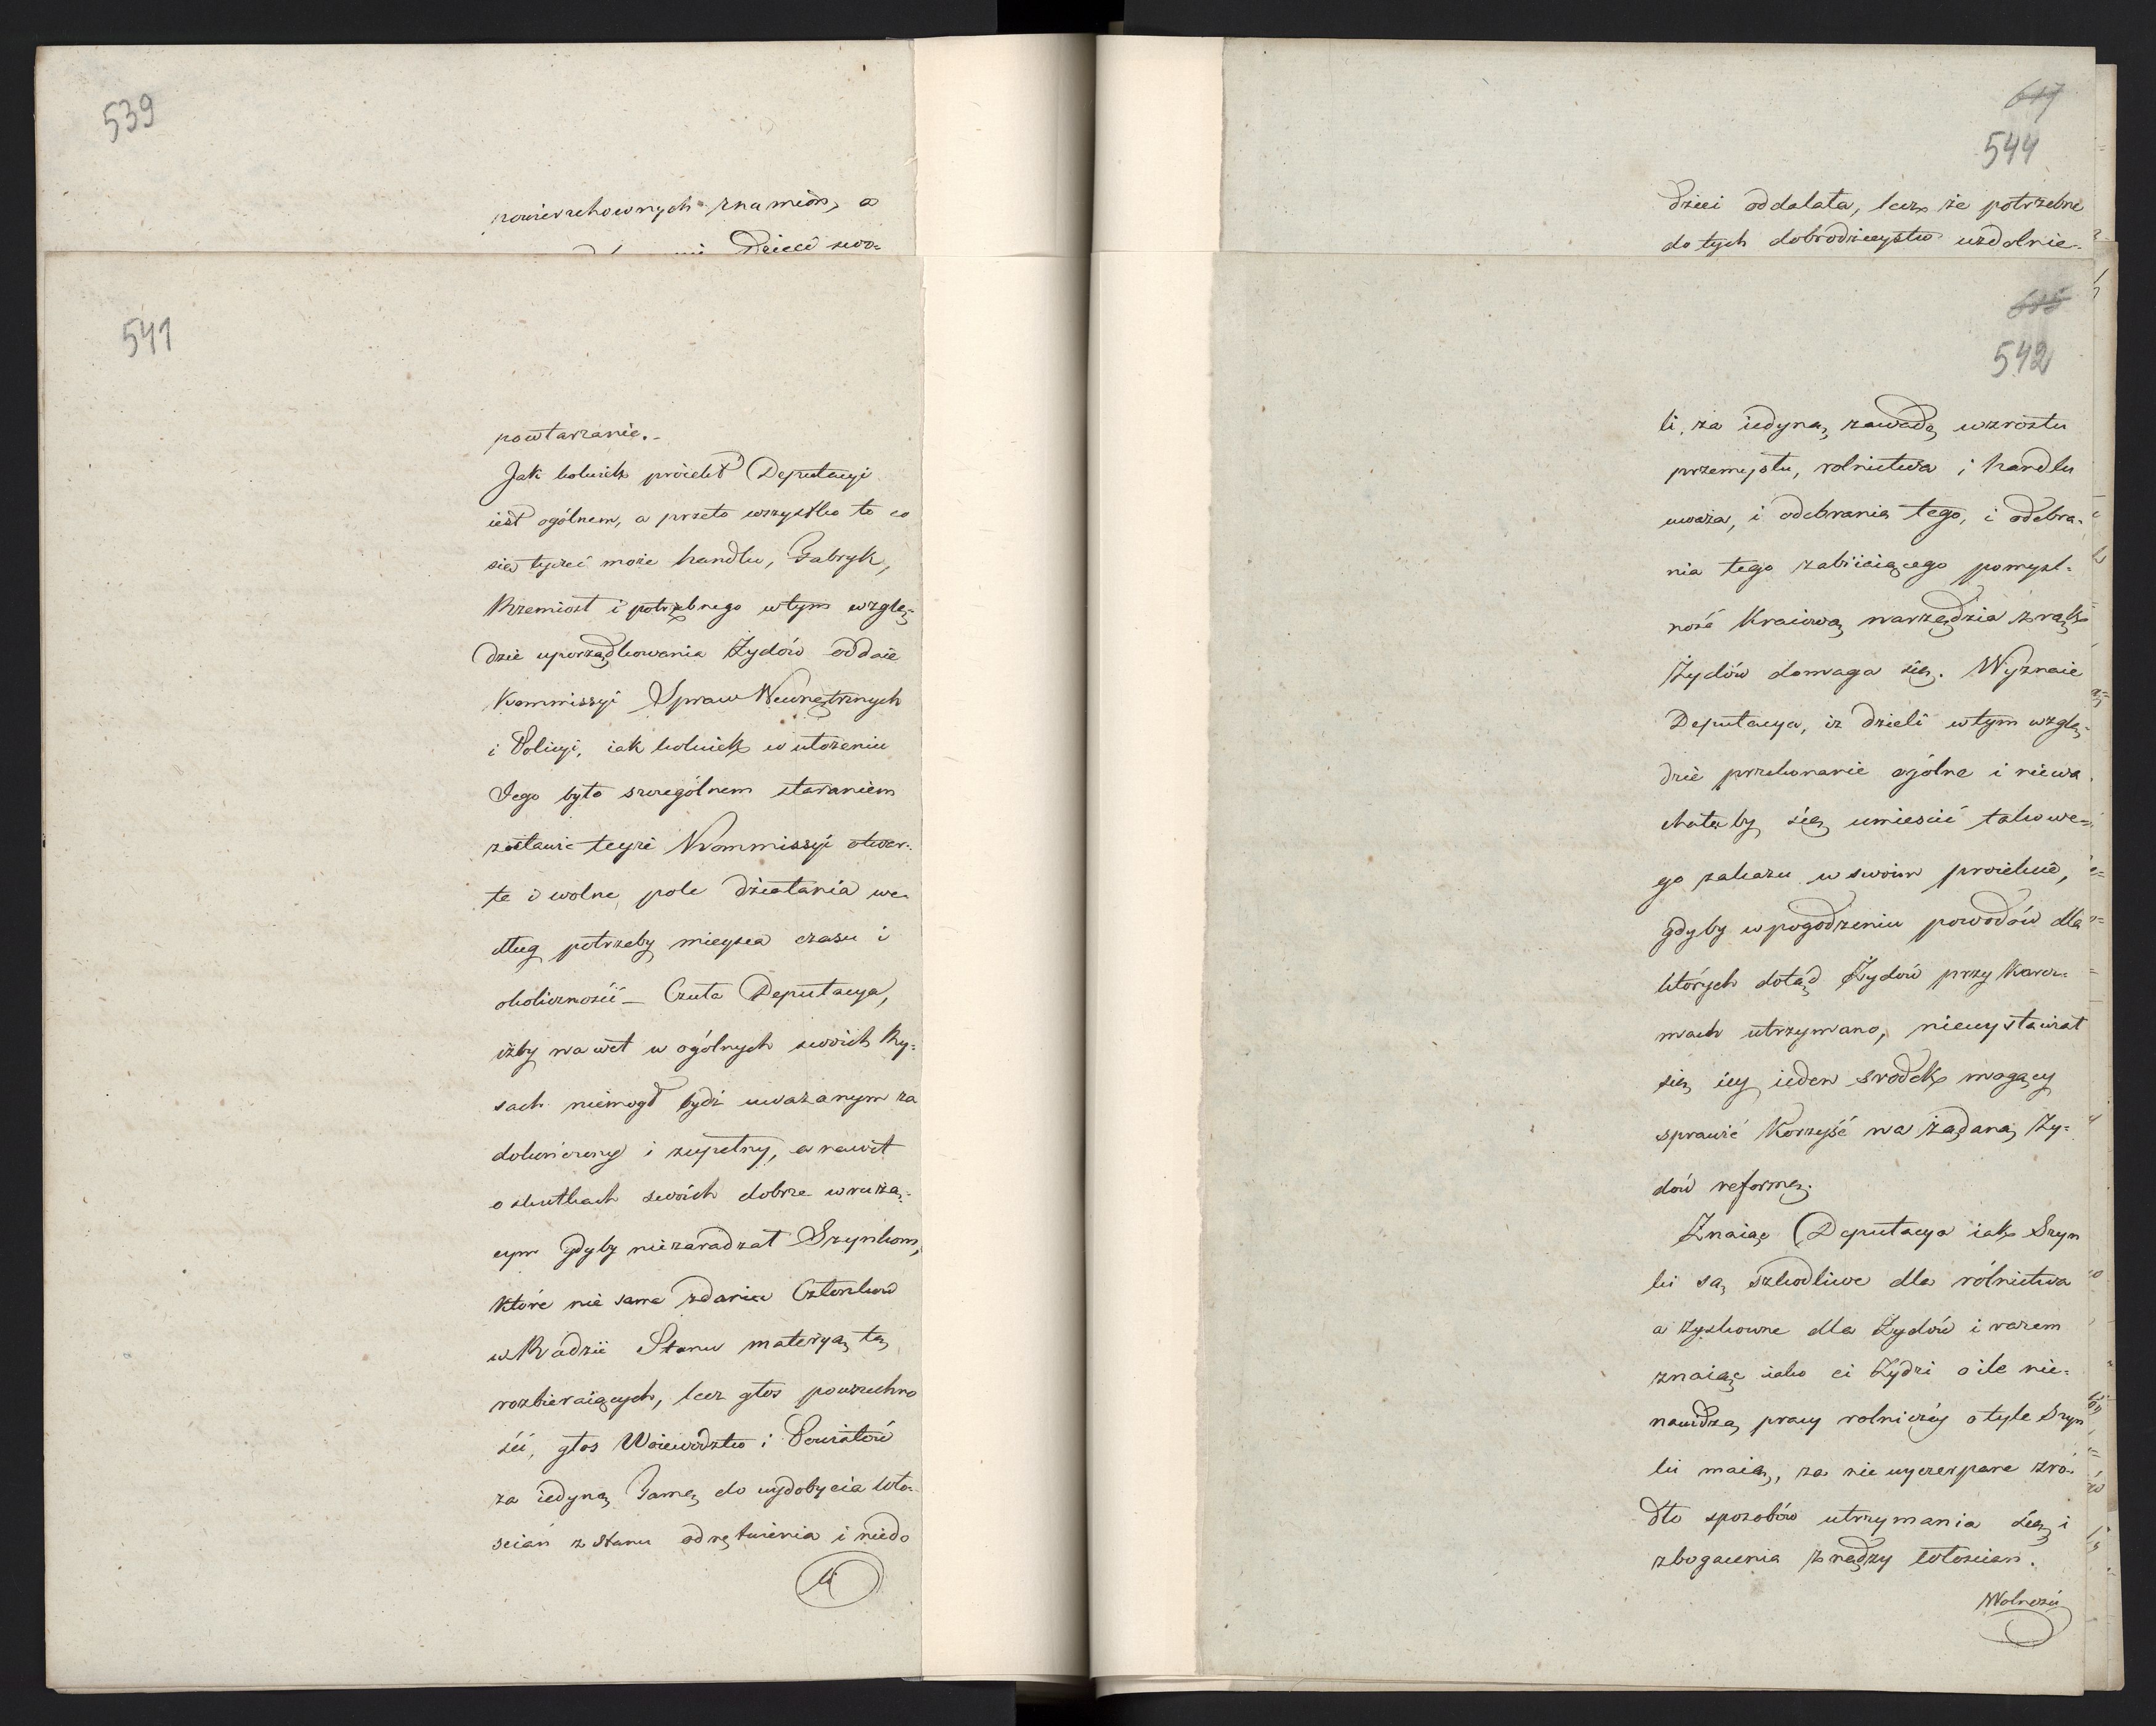 539
powierzchownych znamion, a
Dzieci swo-
541
powtarzanie.-
Jak kolwiek proiekt Deputacyi
iest ogólnem, a przeto wszystko to co
się tyczeć może handlu, Fabryk,
Rzemiosł i potrzebnego wtym wzglę-
dzie uporządkowania Żydów oddaie
Kommissyi Spraw Wewnętrznych
i Policyi, iak kolwiek w ułożeniu
Iego było szczególnem staraniem
zostawić teyże Kommissyi otwar-
te i wolne pole działania we-
dług potrzeby mieysca czasu i
okoliczności – Czuła Deputacya,
iżby nawet w ogólnych swoich Ry-
sach niemogł bydź uważanym za
dokończony i zupełny, a nawet
o skutkach swoich dobrze wrużą-
cym gdyby niezaradzał Szynkom,
które nie same zdania Członków
w Radzie Stanu materyą tą
rozbieraiących, lecz głos powszechno
ści, głos Woiewództw i Powiatów
za iedyną Tamę do wydobycia wło-
ścian z stanu odrętwienia i niedo
li
617
544
dzieci oddalała, lecz że potrzebne
do tych dobrodzieystw uzdolnie-
615
542
li, za iedyną zawadę wzrostu
przemysłu, rolnictwa i handlu
uważa, i odebrania tego, i odebra-
nia tego zabiiaiącego pomyśl-
ność Kraiową narzędzia z rąk
Żydów domaga się. Wyznaie
Deputacya, iż dzieli wtym wzglę-
dzie przekonanie ogólne i niewa
chałaby się umieścić takowe-
go zakazu w swoim proiekcie,
gdyby w pogodzeniu powodów dla
których dotąd Żydów przy Karcz-
mach utrzymano, niewystawiał
się iey ieden środek mogący
sprawić Korzyść na żądaną Ży-
dów reformę.
Znaiąc Deputacya iak Szyn
ki są szkodliwe dla rólnictwa
a zyskowne dla Żydów i razem
znaiąc iako ci Żydzi o ile nie-
nawidzą pracy rolniczéy o tyle Szyn
ki maią, za nie wyczerpane źró-
dło sposobów utrzymania się i
zbogacenia z nędzy włościan.
Wolności